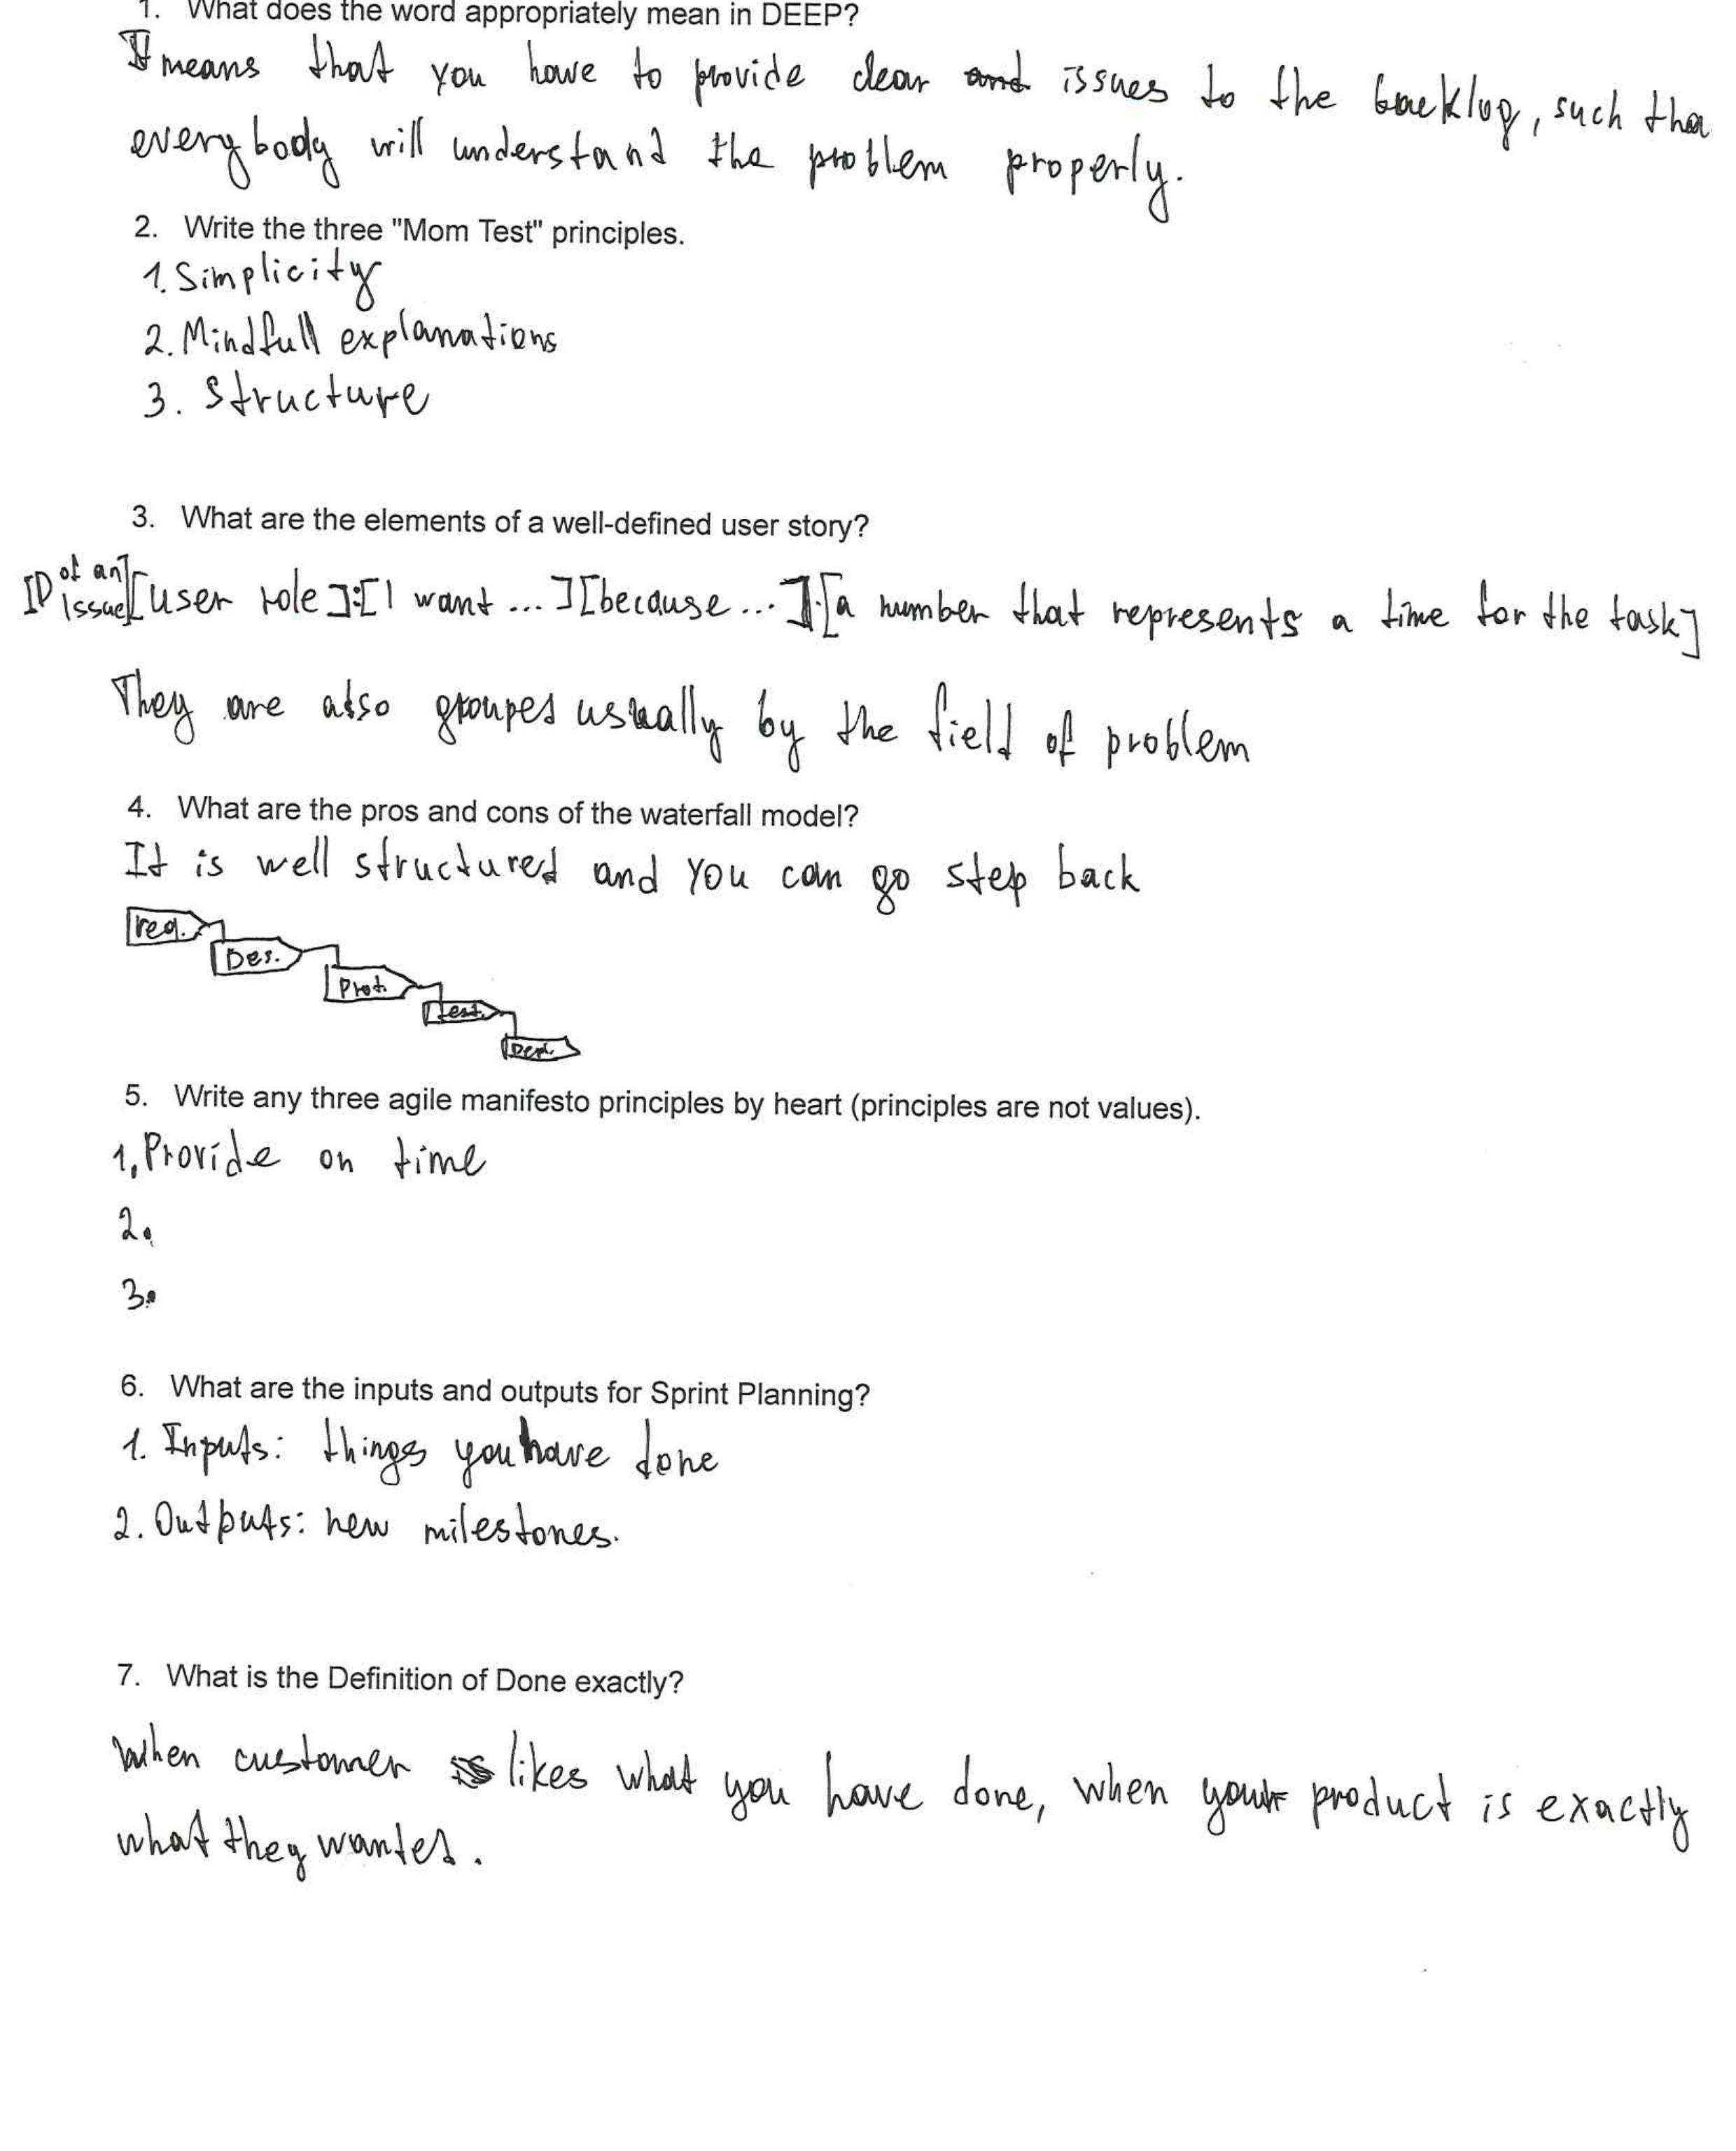 1. What does the word appropriately mean in DEEP?
It means that you have to provide clear and issues to the backlog, such tha
everybody will understand the problem properly.
2. Write the three "Mom Test" principles.
1. Simplicity
2. Mindfull explanations
3. Structure
3. What are the elements of a well-defined user story?
[ID of an issue][user role]:[I want ...][because ...].[a number that represents a time for the task]
They are also groupes usually by the field of problem
4. What are the pros and cons of the waterfall model?
It is well structured and you can go step back
req.
Des.
Prot.
Test.
5. Write any three agile manifesto principles by heart (principles are not values).
1, Provide on time
2.
3.
6. What are the inputs and outputs for Sprint Planning?
1. Inputs: things you have done
2. Outputs: new milestones.
7. What is the Definition of Done exactly?
When customer likes what you have done, when your product is exactly
what they wanted.